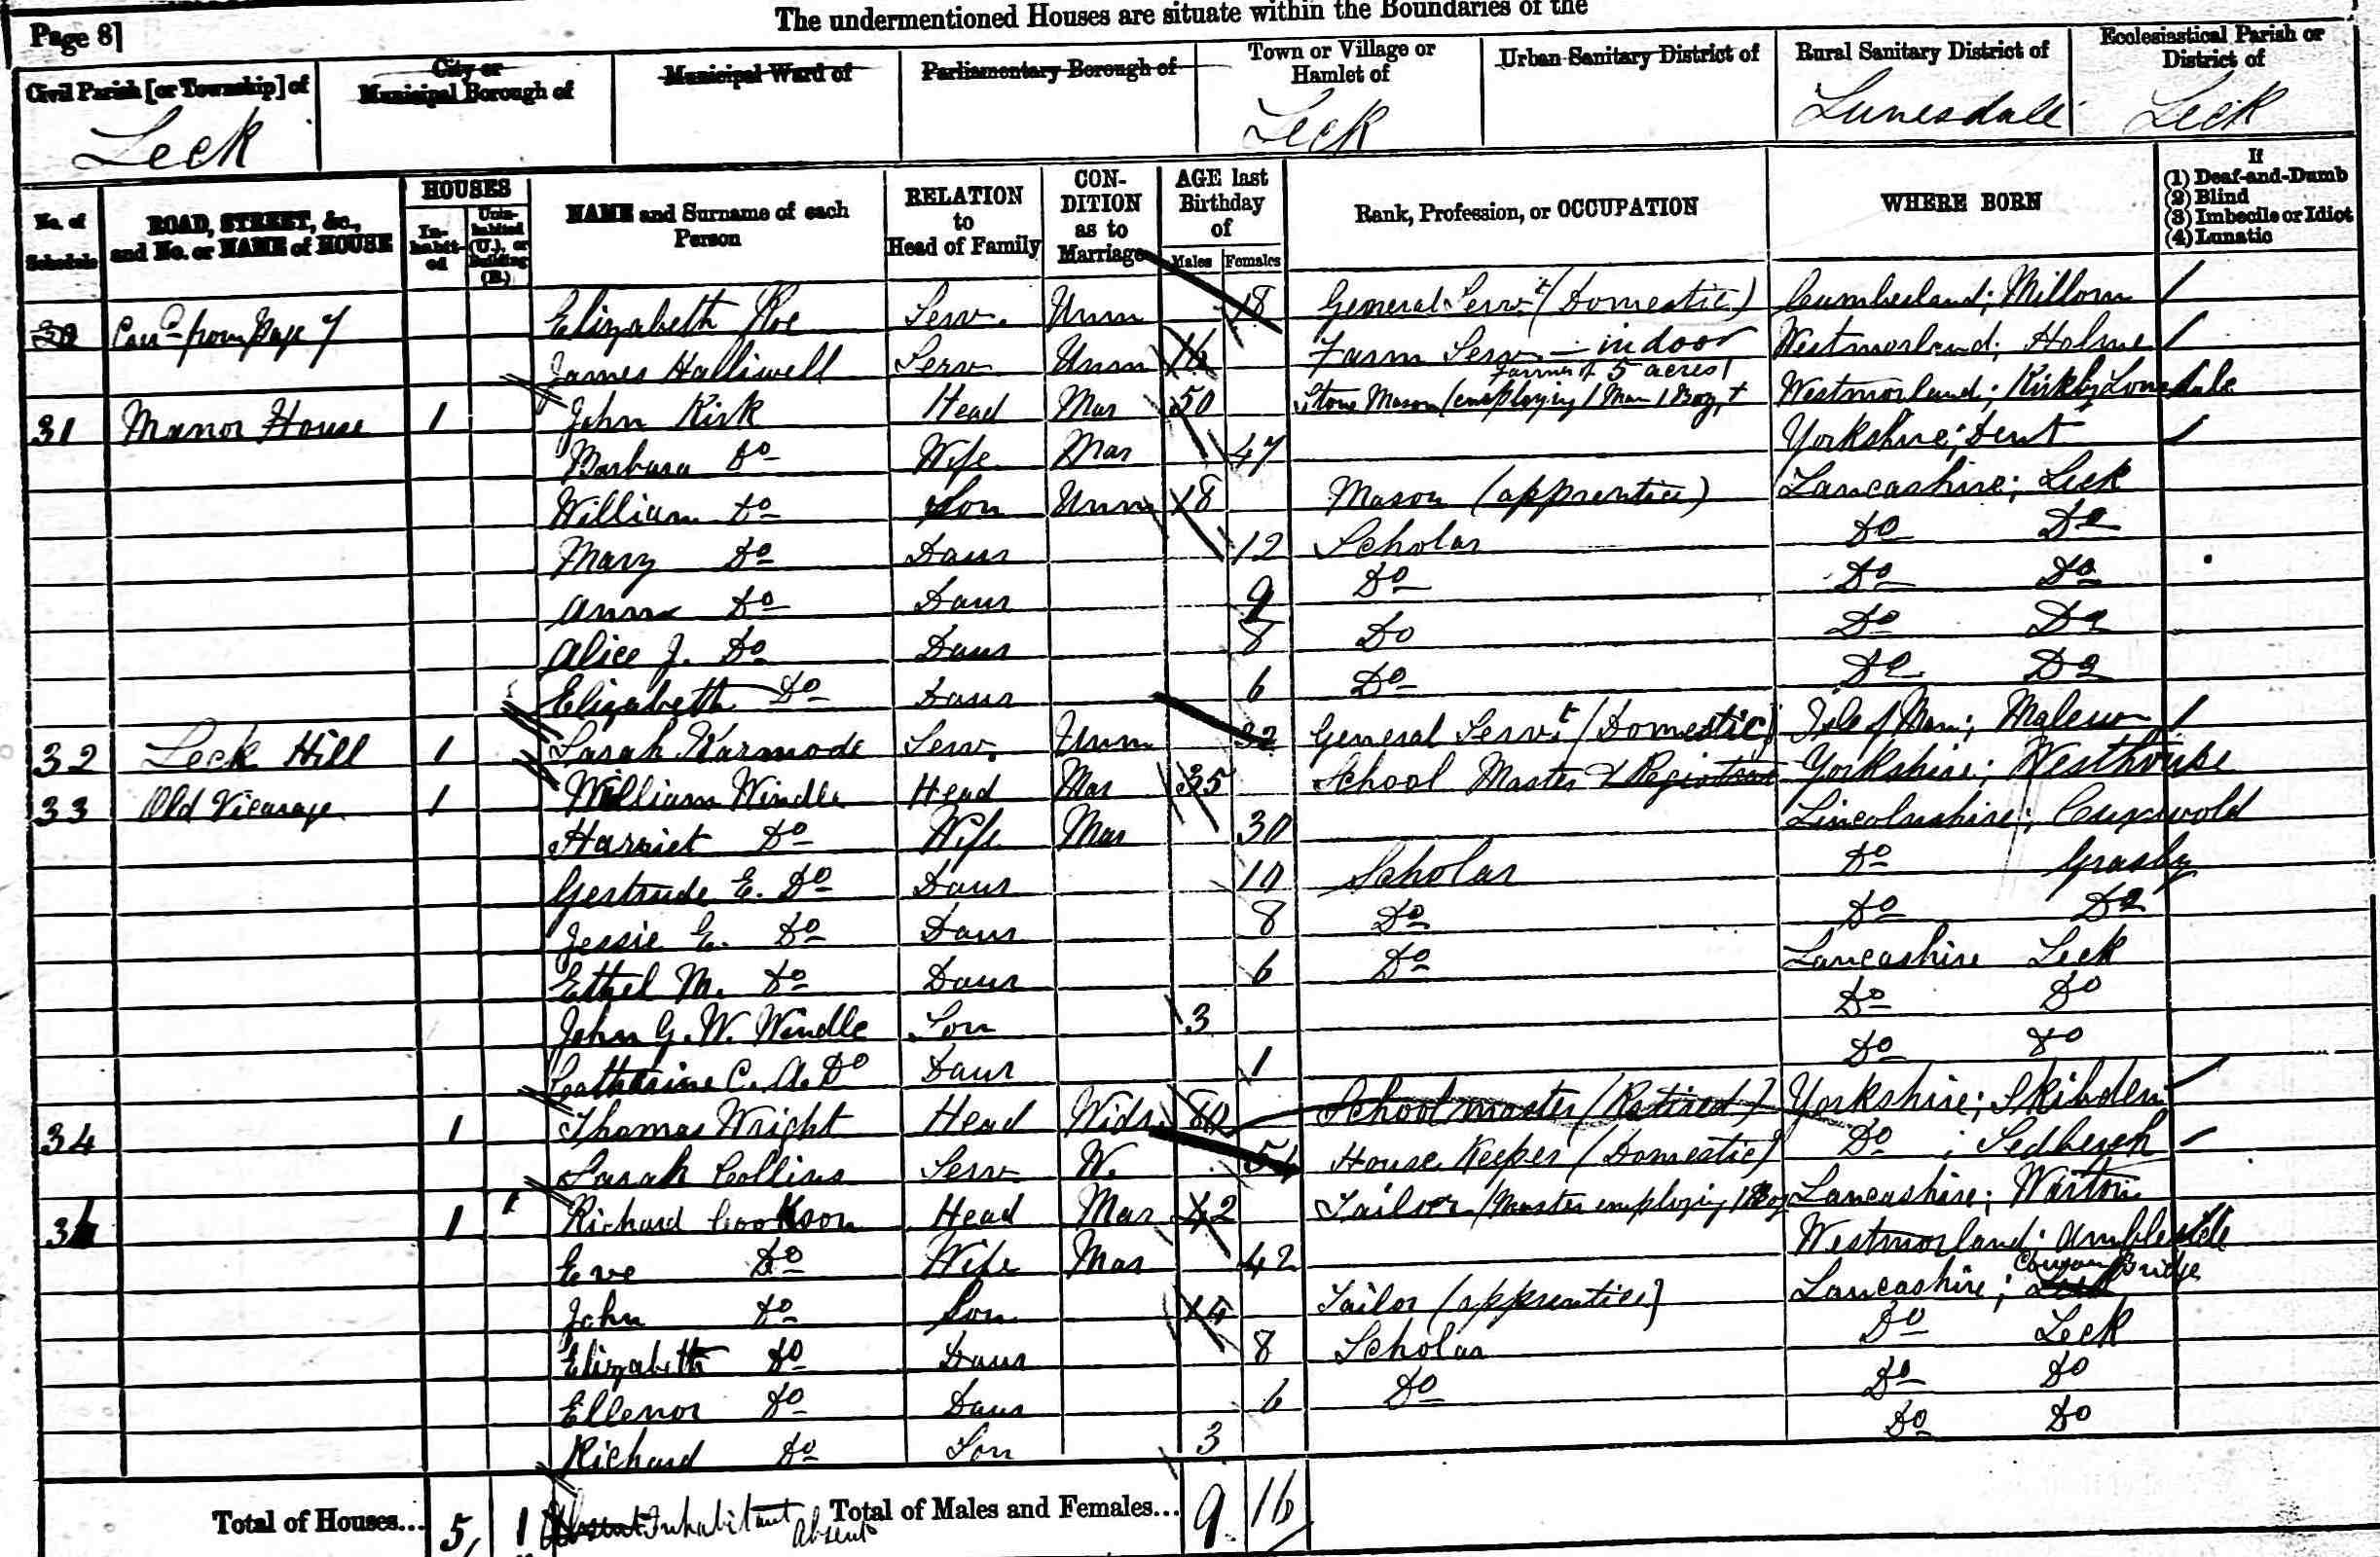 Page 8]
The undermentioned Houses are situate within the Boundaries of the
Civil Parish [or Township] of
City or Municipal Borough of
Municipal Ward of
Parliamentary Borough of
Town or Village or Hamlet of
Urban Sanitary District of
Rural Sanitary District of
Ecclesiastical Parish or District of
Leck Leck Lunesdale Leck
No. of Schedule
ROAD, STREET, &c., and No. or NAME of HOUSE
HOUSES
In-habit-ed
Unin-habited (U.), or Building (B.)
NAME and Surname of each Person
RELATION to Head of Family
CON-DITION as to Marriage
AGE last Birthday of
Males Females
Rank, Profession, or OCCUPATION
WHERE BORN
If
(1) Deaf-and-Dumb
(2) Blind
(3) Imbecile or Idiot
(4) Lunatic
from Page 7 Elizabeth Roe Serv. Unm 18 General Servt (Domestic) Cumberland; Millom
James Halliwell Serv Unm 16 Farm Serv - indoor Westmorland; Holme
Farmer of 5 acres
31 Manor House 1 John Kirk Head Mar 50 Stone Mason (employing 1 Man 1 Boy, + Westmorland; Kirkby Lonsdale
Barbara Do Wife Mar 47 Yorkshire; Dent
William Do Son Unm 18 Mason (apprentice) Lancashire; Leck
Mary Do Daur 12 Scholar Do Do
Ann Do Daur 9 Do Do Do
Alice J. Do Daur 8 Do Do Do
Elizabeth Do Daur 6 Do Do Do
32 Leck Hill 1 Sarah Karmode Serv. Unm 32 General Servt (Domestic) Isle of Man; Malew
33 Old Vicarage 1 William Windle Head Mar 35 School Master & Registrar Yorkshire; Westhouse
Harriet Do Wife Mar 30 Lincolnshire;
Gertrude E. Do Daur 10 Scholar Do Grasby
Jessie E. Do Daur 8 Do Do Do
Ethel M. Do Daur 6 Do Lancashire Leck
John G. W. Windle Son 3 Do Do
Catharine C. A. Do Daur 1 Do Do
34 1 Thomas Wright Head Widr 80 Schoolmaster (Retired) Yorkshire; Skibden
Sarah Collins Serv W. House Keeper (Domestic) Do ; Sedbergh
1 1 Richard Cookson Head Mar 42 Tailor (Master employing 1 Boy Lancashire; Warton
Eve Do Wife Mar 42 Westmorland; Ambleside
John Do Son 14 Tailor (apprentice) Lancashire; Cowan Bridge
Elizabeth Do Daur 8 Scholar Do Leck
Ellenor Do Daur 6 Do Do Do
Richard Do Son 3 Do Do
Total of Houses... 5 1 Inhabitant absent Total of Males and Females... 9 16